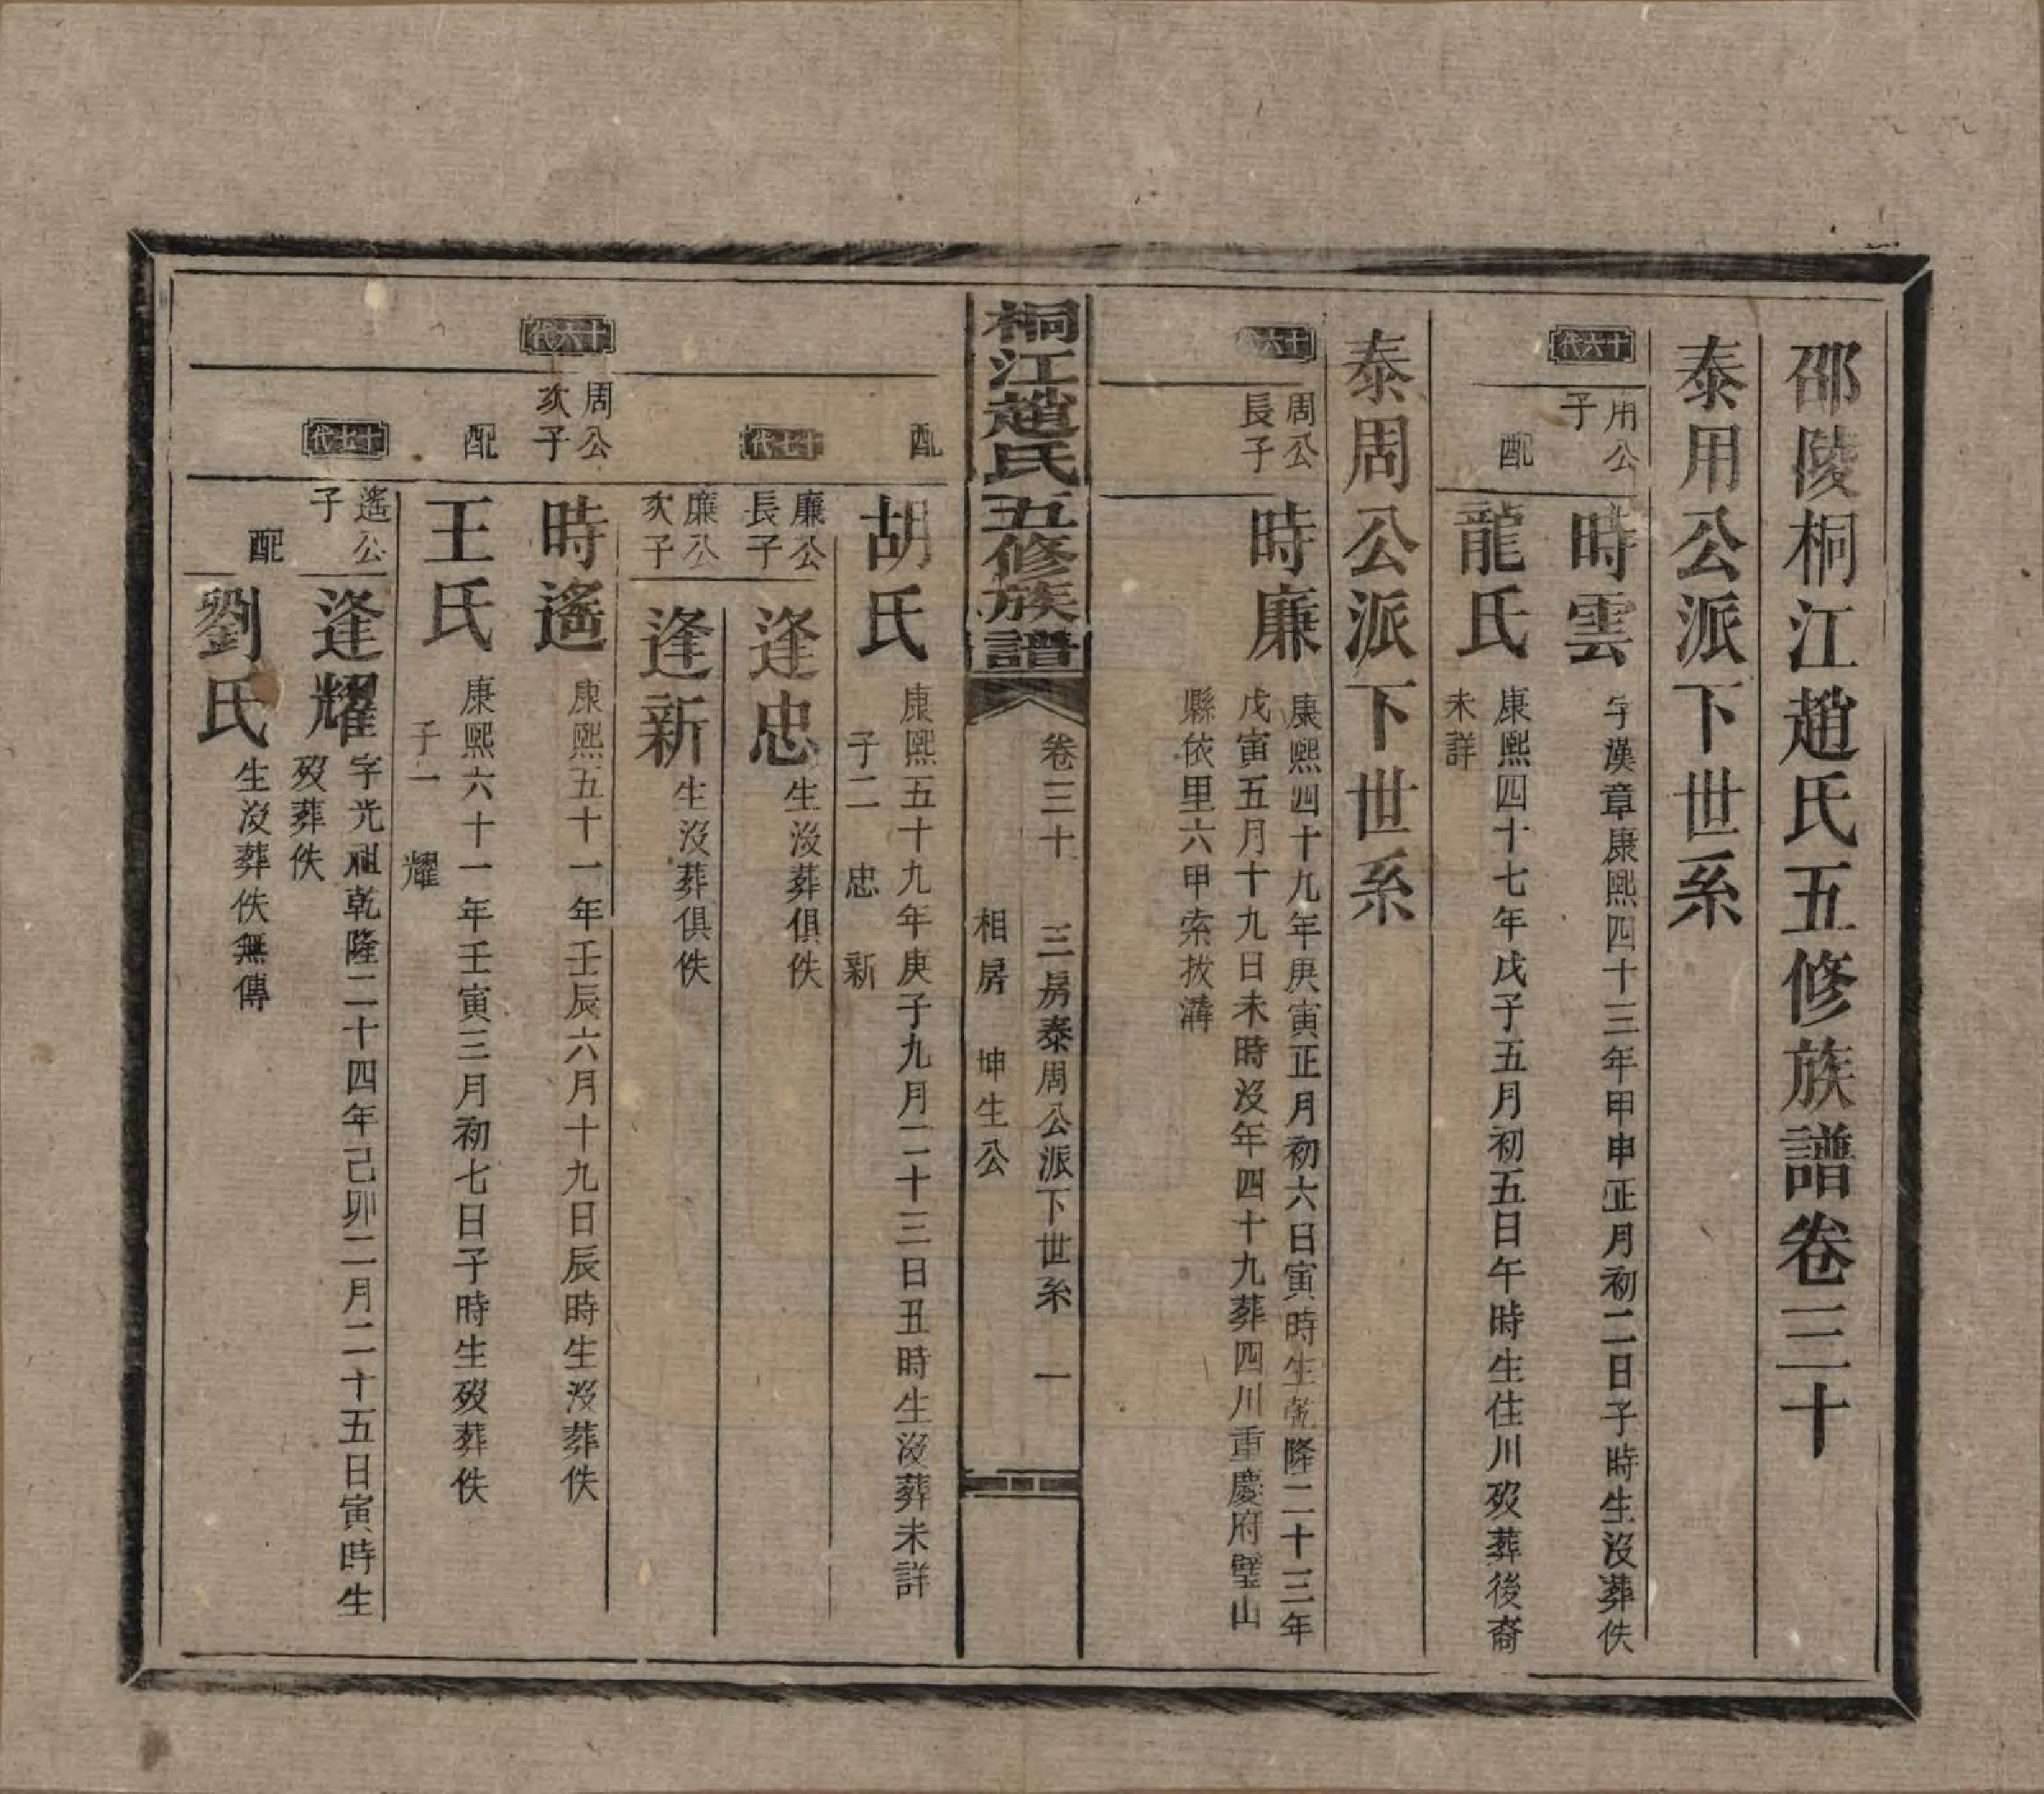 邵陵桐江趙氏五修族譜卷三十
泰用公派下世系
十六代
用公子
時雲
字漢章康熙四十三年甲申正月初二日子時生沒葬佚
配
龍氏
康熙四十七年戊子五月初五日午時生住川歿葬後裔
未詳
泰周公派下世系
十六代
周公
長子
時廉
康熙四十九年庚寅正月初六日寅時生乾隆二十三年
戊寅五月十九日未時沒年四十九葬四川重慶府璧山
縣依里六甲索拔溝
桐江趙氏五修族譜
卷三十 三房泰周公派下世系 一
相房 坤生公
配
胡氏
康熙五十九年庚子九月二十三日丑時生沒葬未詳
子二 忠 新
十七代
廉公
長子
逢忠
生沒葬俱佚
廉公
次子
逢新
生沒葬俱佚
十六代
周公
次子
時遙
康熙五十一年壬辰六月十九日辰時生沒葬佚
配
王氏
康熙六十一年壬寅三月初七日子時生歿葬佚
子一 耀
十七代
遙公
子
逢耀
字光祖乾隆二十四年己卯二月二十五日寅時生
歿葬佚
配
劉氏
生沒葬佚無傳